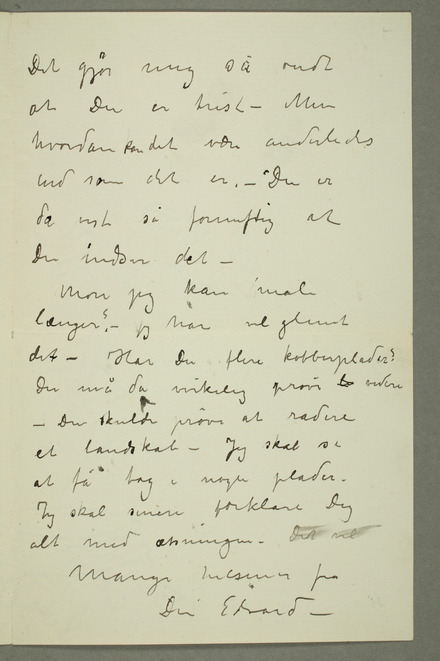 Det gjør mig så ondt
at Du er trist – Men
hvordan kan det være anderledes
end som det er. – Du er
da vist så fornuftig at
Du indser det –
Mon jeg kan male
længer? – jeg har vel glemt
det – Har Du flere kobberplader?
Du må da virkelig prøve videre
– Du skulde prøve at radere
et landskab – Jeg skal se
at få tag i nogle plader.
Jeg skal senere forklare Dig
alt med ætsningen. Det vil
Mange hilsener fra
Din Edvard –